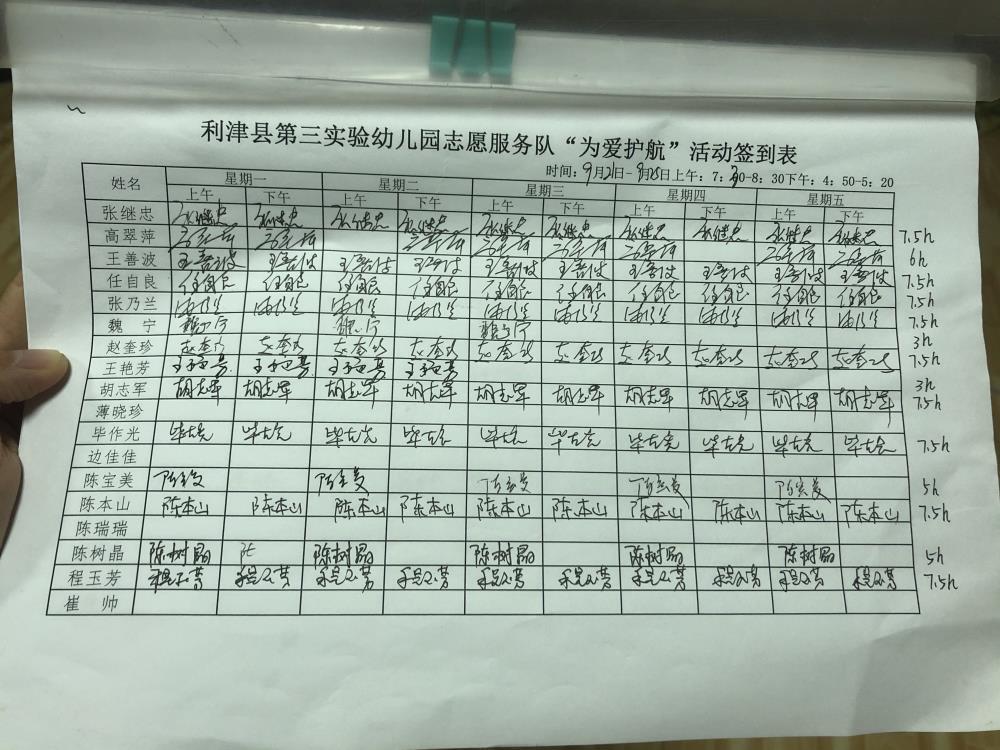 利津县第三实验幼儿园志愿服务队“为爱护航”活动签到表
时间：9月21日-9月25日上午：7：30-8：30下午：4：50-5：20
姓名 星期一 星期二 星期三 星期四 星期五
上午 下午 上午 下午 上午 下午 上午 下午 上午 下午
张继忠 张继忠 张继忠 张继忠 张继忠 张继忠 张继忠 张继忠 张继忠 张继忠 张继忠 7.5h
高翠萍 高翠萍 高翠萍 高翠萍 高翠萍 高翠萍 高翠萍 高翠萍 高翠萍 6h
王善波 王善波 王善波 王善波 王善波 王善波 王善波 王善波 王善波 王善波 王善波 7.5h
任自良 任自良 任自良 任自良 任自良 任自良 任自良 任自良 任自良 任自良 任自良 7.5h
张乃兰 7.5h
魏 宁 魏宁 魏宁 魏宁 3h
赵奎珍 赵奎珍 赵奎珍 赵奎珍 赵奎珍 赵奎珍 赵奎珍 赵奎珍 赵奎珍 赵奎珍 赵奎珍 7.5h
王艳芳 王艳芳 王艳芳 王艳芳 王艳芳 3h
胡志军 胡志军 胡志军 胡志军 胡志军 胡志军 胡志军 胡志军 胡志军 胡志军 胡志军 7.5h
薄晓珍
毕作光 毕作光 毕作光 毕作光 毕作光 毕作光 毕作光 毕作光 毕作光 毕作光 毕作光 7.5h
边佳佳
陈宝美 陈宝美 陈宝美 陈宝美 陈宝美 陈宝美 5h
陈本山 陈本山 陈本山 陈本山 陈本山 陈本山 陈本山 陈本山 陈本山 陈本山 陈本山 7.5h
陈瑞瑞
陈树晶 陈树晶 陈树晶 陈树晶 陈树晶 陈树晶 5h
程玉芳 程玉芳 程玉芳 程玉芳 程玉芳 程玉芳 程玉芳 程玉芳 程玉芳 程玉芳 程玉芳 7.5h
崔 帅